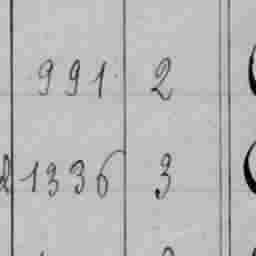 991 2
1336 3